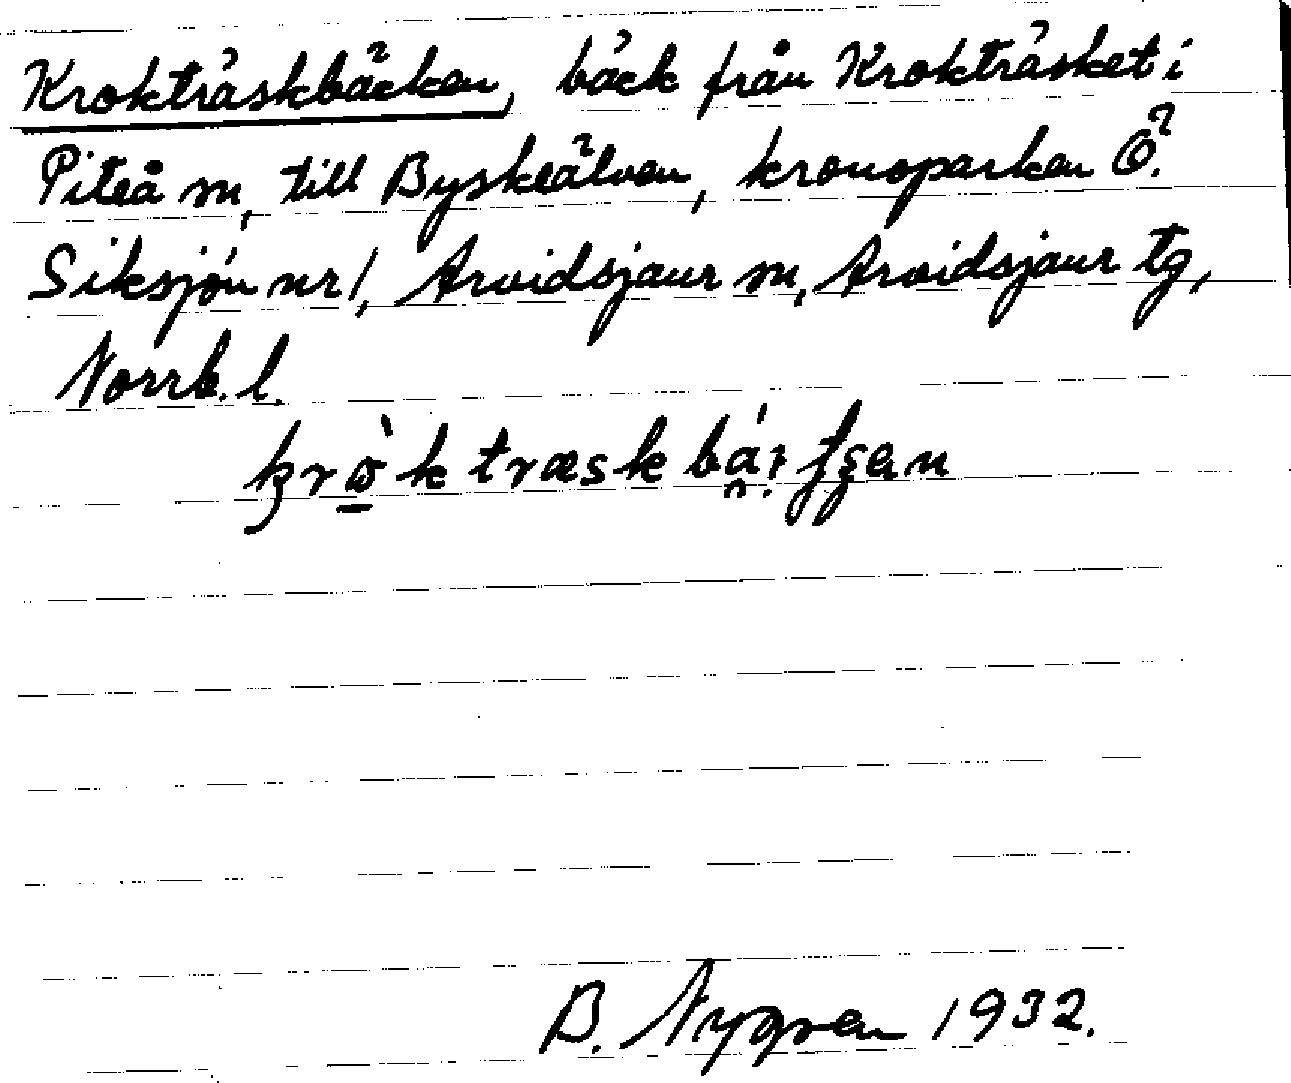 Krokträskbäcken, bäck från Krokträsket i
Piteå sn, till Byskeälven, kronoparken Ö.
Siksjön nr 1, Arvidsjaur sn, Arvidsjaur tg,
Norrb. l.
B. Nygren 1932.